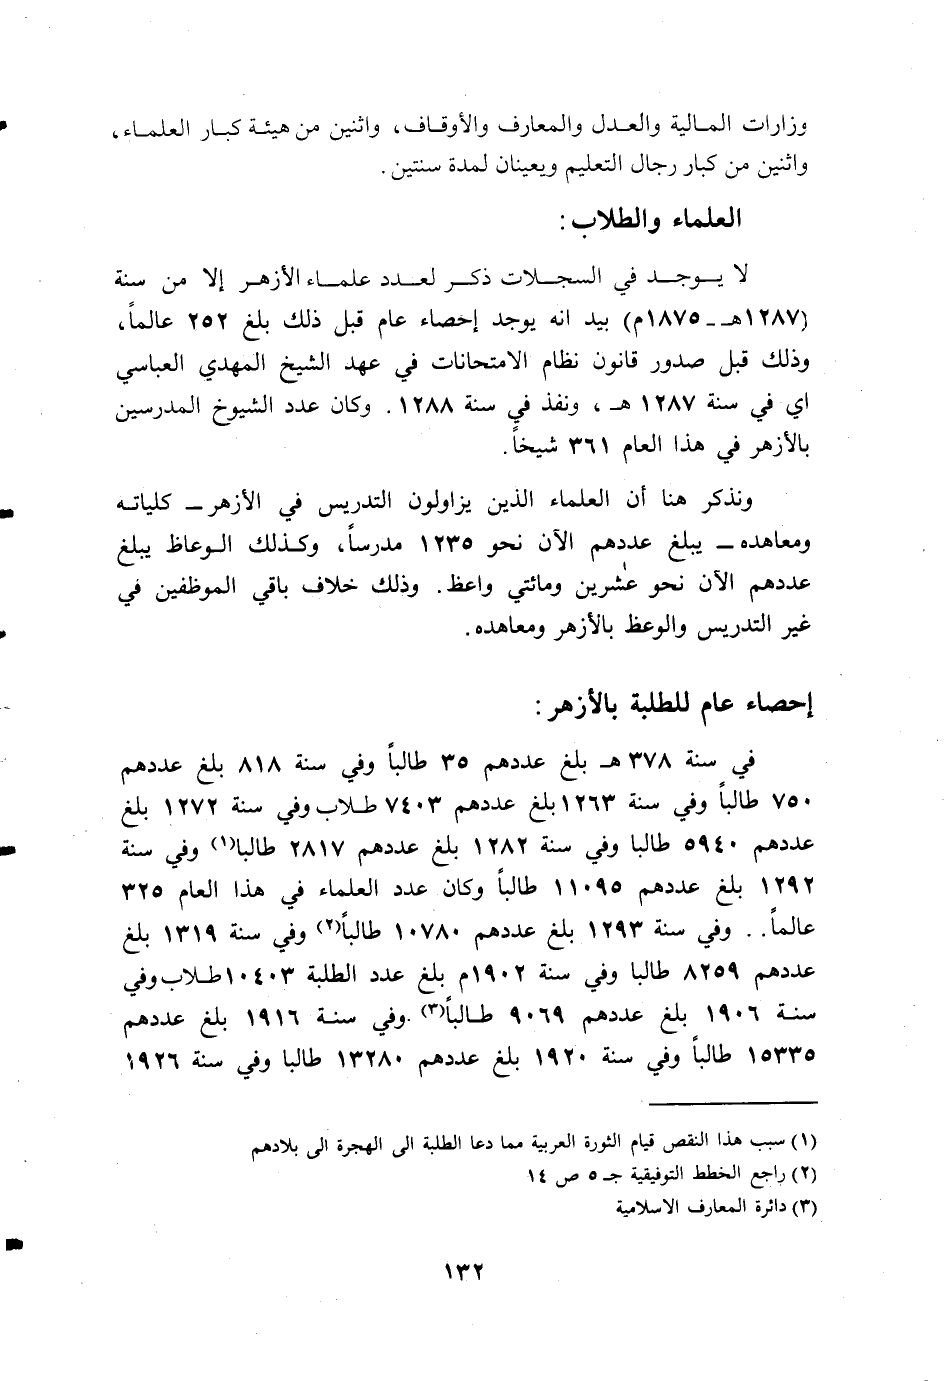 وزارات المالية والعدل والمعارف والأوقاف، واثنين من هيئة كبار العلماء،
واثنين من كبار رجال التعليم ويعينان لمدة سنتين.
العلماء والطلاب:
لا يوجد في السجلات ذكر لعدد علماء الأزهر إلا من سنة
(١٢٨٧هـ ـ ١٨٧٥م) بيد انه يوجد إحصاء عام قبل ذلك بلغ ٢٥٢ عالماً،
وذلك قبل صدور قانون نظام الامتحانات في عهد الشيخ المهدي العباسي
اي في سنة ١٢٨٧ هـ ، ونفذ في سنة ١٢٨٨. وكان عدد الشيوخ المدرسين
بالأزهر في هذا العام ٣٦١ شيخاً.
ونذكر هنا أن العلماء الذين يزاولون التدريس في الأزهر ـ كلياته
ومعاهده ـ يبلغ عددهم الآن نحو ١٢٣٥ مدرساً، وكذلك الوعاظ يبلغ
عددهم الآن نحو عشرين ومائتي واعظ. وذلك خلاف باقي الموظفين في
غير التدريس والوعظ بالأزهر ومعاهده.
إحصاء عام للطلبة بالأزهر:
في سنة ٣٧٨ هـ بلغ عددهم ٣٥ طالباً وفي سنة ٨١٨ بلغ عددهم
٧٥٠ طالباً وفي سنة ١٢٦٣ بلغ عددهم ٧٤٠٣ طلاب وفي سنة ١٢٧٢ بلغ
عددهم ٥٩٤٠ طالبا وفي سنة ١٢٨٢ بلغ عددهم ٢٨١٧ طالبا(١) وفي سنة
١٢٩٢ بلغ عددهم ١١٠٩٥ طالباً وكان عدد العلماء في هذا العام ٣٢٥
عالماً.. وفي سنة ١٢٩٣ بلغ عددهم ١٠٧٨٠ طالباً(٢) وفي سنة ١٣١٩ بلغ
عددهم ٨٢٥٩ طالبا وفي سنة ١٩٠٢م بلغ عدد الطلبة ١٠٤٠٣ طلاب وفي
سنة ١٩٠٦ بلغ عددهم ٩٠٦٩ طالباً(٣). وفي سنة ١٩١٦ بلغ عددهم
١٥٣٣٥ طالباً وفي سنة ١٩٢٠ بلغ عددهم ١٣٢٨٠ طالبا وفي سنة ١٩٢٦
(١) سبب هذا النقص قيام الثورة العربية مما دعا الطلبة الى الهجرة الى بلادهم
(٢) راجع الخطط التوفيقية جـ ٥ ص ١٤
(٣) دائرة المعارف الاسلامية
١٣٢